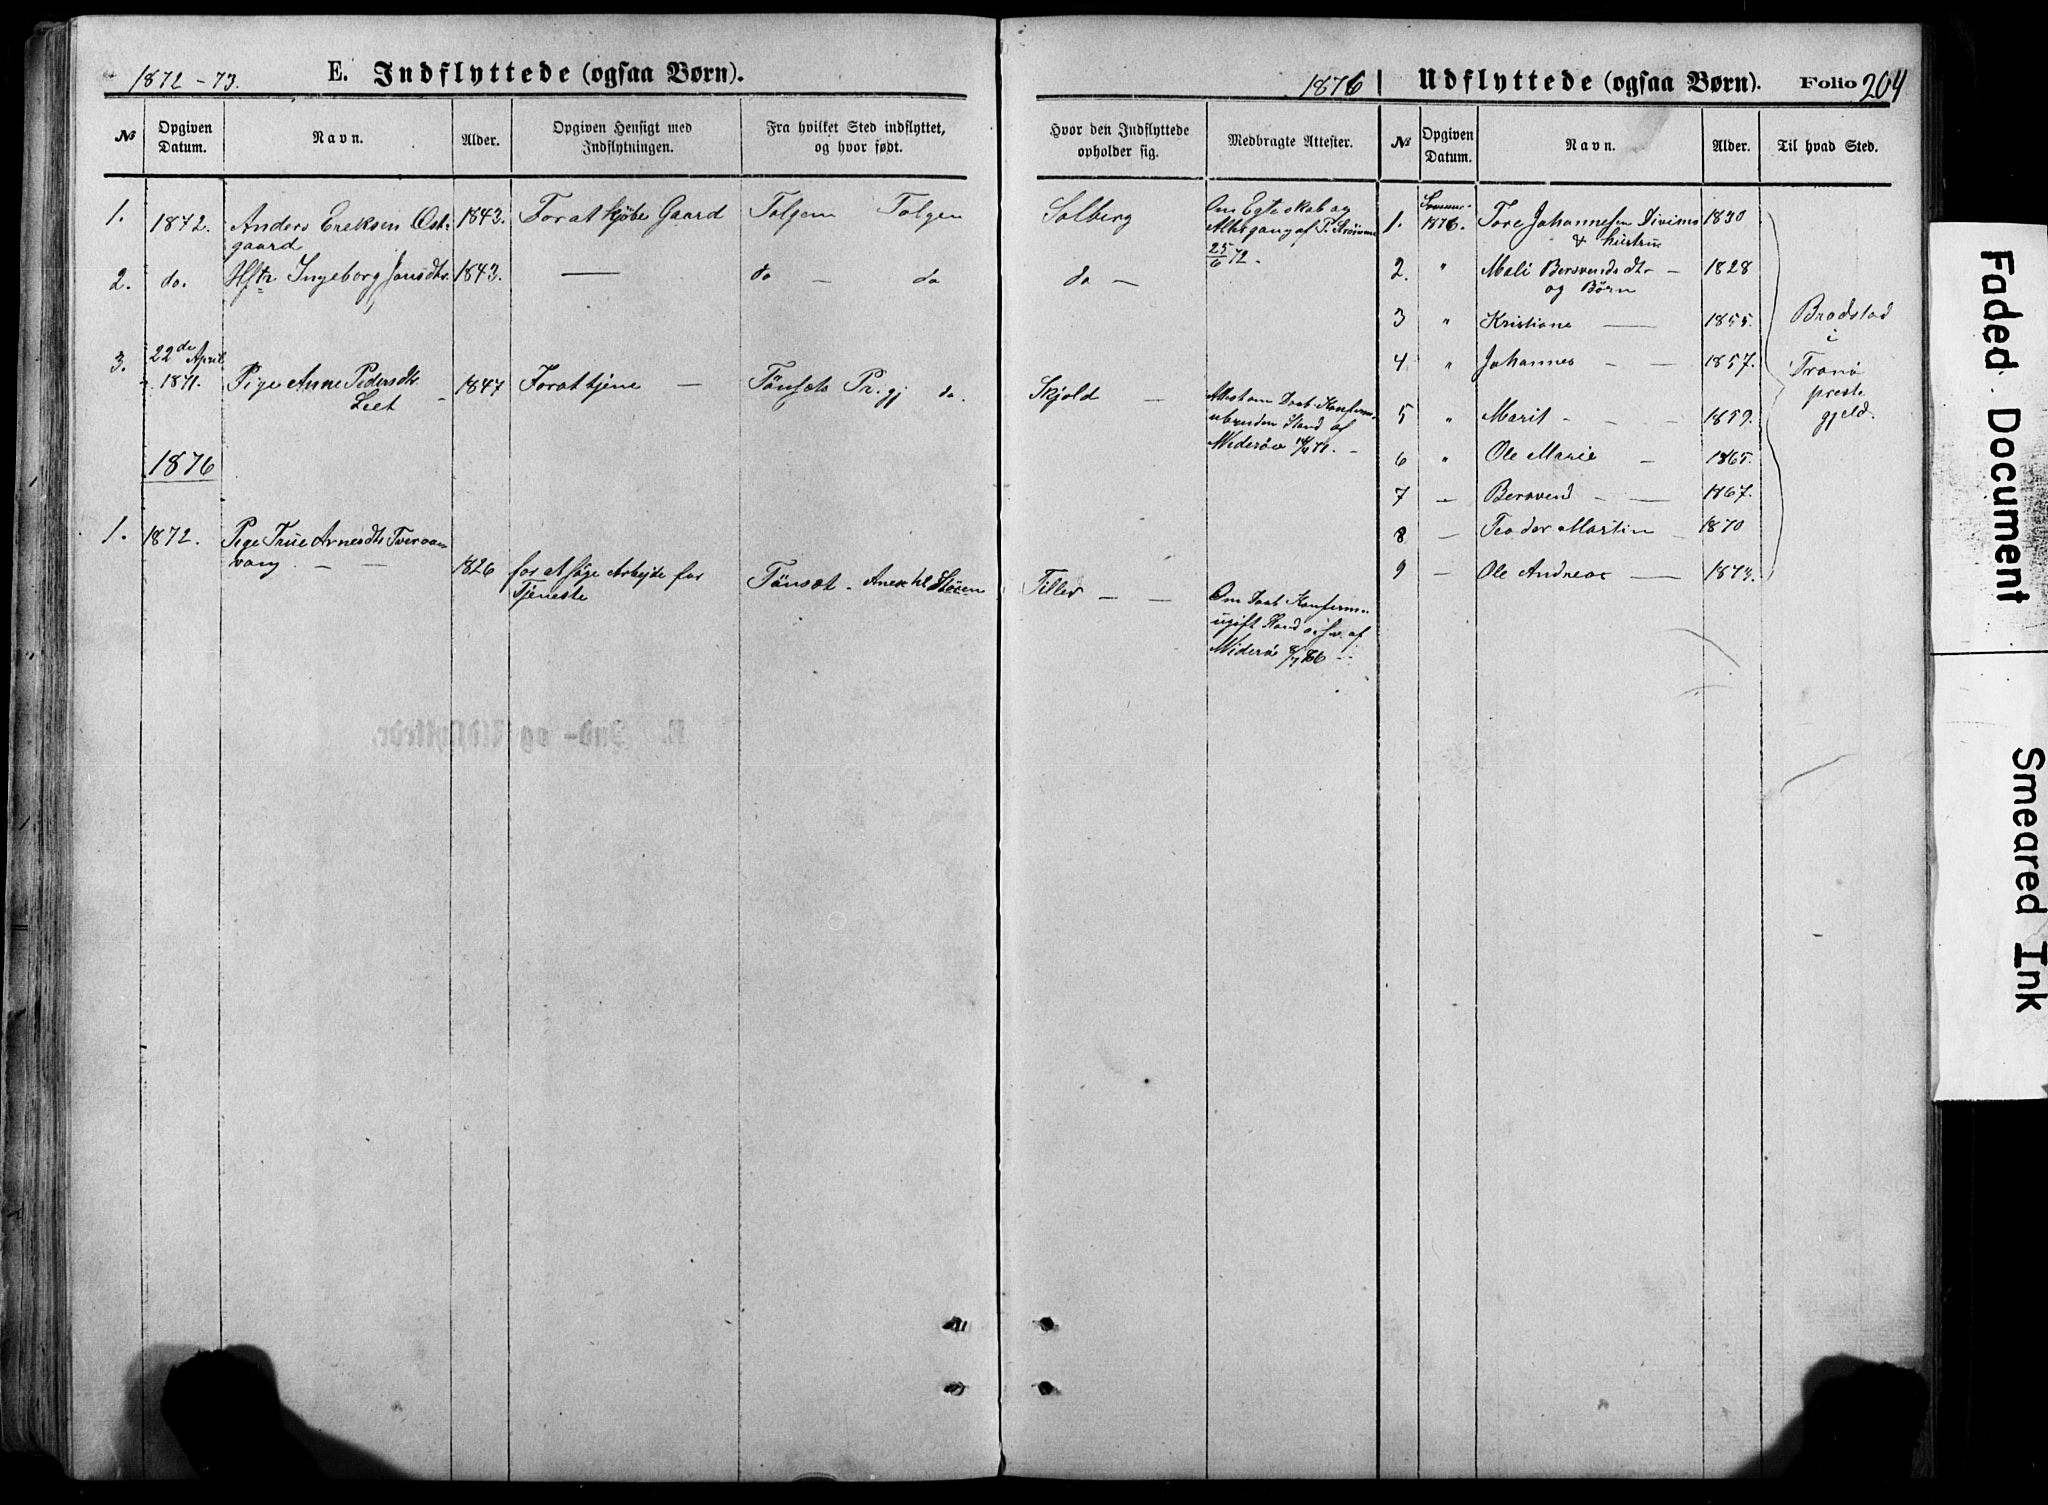 1872-73. E. Indflyttede (ogsaa Børn).
№ Opgiven Datum. Navn. Alder. Opgiven Hensigt med Indflytningen. Fra hvilket Sted indflyttet, og hvor født.
1. 1872. Anders Eriksen Øst- 1843. For at kjøbe Gaard Tolgen Tolgen
gaard
2. do. Hstr Ingeborg Jonsdtr. 1843. — do — do
3. 22de April
1871. Pige Anne Pedersdtr. 1847 For at tjene — Tönsets Pr.gj do.
1876
1. 1872. Pige True Arnesdtr Tveraan-
vang — — 1826 for at söge Arbejde for Tönset - Anex til
Tjeneste
1876 Udflyttede (ogsaa Børn). Folio 204
Hvor den Indflyttede opholder sig. Medbragte Attester. № Opgiven Datum. Navn. Alder. Til hvad Sted.
Solberg
Om Egteskab og
Altergang af
25/6 72.
do —
Skjold —
Attest om Daab, Konferm.
Stand af
Tiller — —
Om Daab Konferm..
ugift Stand af
1. 1876. Tore Johannesen 1830
& hustru
2. " Mali Bersvendsdtr — 1828
og Börn
3 " Kristiane — 1855.
4 " Johannes - - 1857.
5 " Marit - - - 1859.
6 " Ole Marie — 1865.
7 - Bersvend - — 1867.
8 — Teodor Martin - 1870
9 — Ole Andreas — 1873.
Bradstad
i
Tranö
preste
gjeld.
E. Ind- og Udflyttede.
Faded Document
Smeared Ink